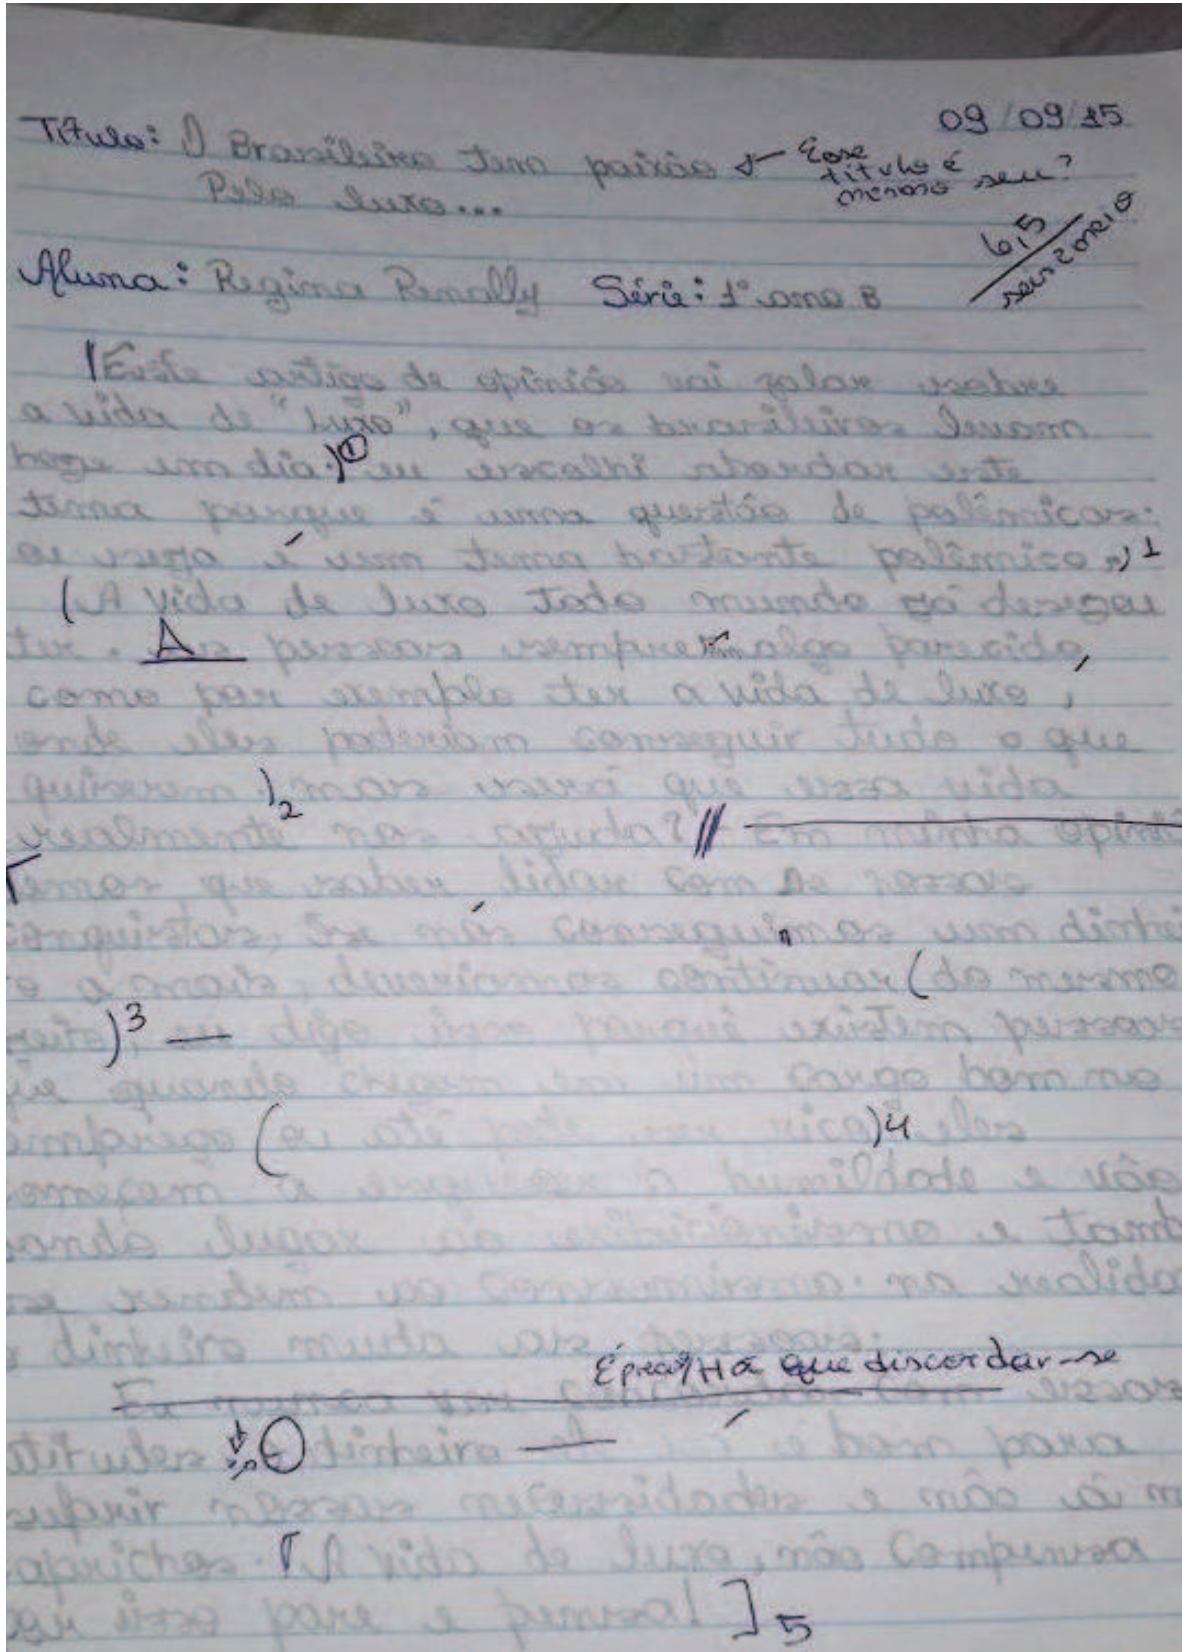 09/09/15
Título: O Brasileiro tem paixão
Esse título é mesmo seu?
Pelo luxo...
6,5
Aluna: Regina Renally Série: 1º ano B
Este artigo de opinião vai falar sobre
a vida de "Luxo", que os brasileiros levam
hoge em dia.) ① eu escolhi abordar este
tema porque é uma questão de polêmicas:
ou seja é um tema bastante polêmico.) 1
(A vida de luxo todo mundo só desejou
ter. As pessoas sempre algo parecido,
como por exemplo ter a vida de luxo,
onde eles poderiam conseguir tudo o que
quiserem )2 mas será que essa vida
realmente nos ajuda? // Em minha opini
Temos que saber lidar com as nossas
conquistas, Se nós conseguimos um dinhei
o a mais, deveriamos continuar (do mesmo
jeito, )3 eu digo isso porque existem pessoas
que quando chegam em um cargo bom no
emprego (ou até pode ser rico )4 eles
começam a esquecer a humildade e vão
ando lugar ao exibicionismo e tamb
se rendem ao consumismo. na realida
o dinheiro muda as pessoas.
É pra/Há que discordar-se
Eu nunca vou concordar com essas
atitudes dinheiro é bom para
suprir nossas necessidades e não à m
caprichos. [A vida de luxo, não compensa
isso pare e pensa! ]5